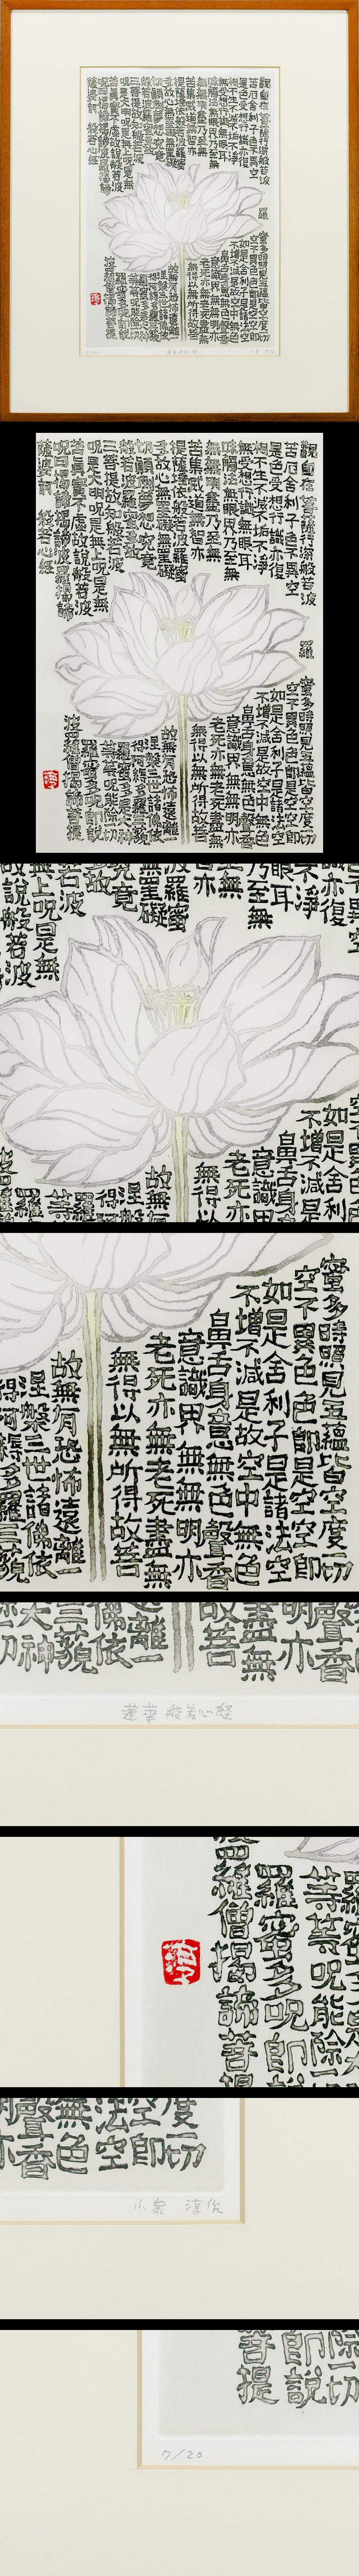 觀自在菩薩行深般若波羅蜜多時照見五蘊皆空度一切
苦厄舍利子色不異空空不異色色即是空空即
是色受想行識亦復如是舍利子是諸法空
相不生不滅不垢不淨不增不減是故空中無色
無受想行識無眼耳鼻舌身意無色聲香
味觸法無眼界乃至無意識界無無明亦
無無明盡乃至無老死亦無老死盡無
苦集滅道無智亦無得以無所得故菩
提薩埵依般若波羅蜜
多故心無罣礙無罣礙故無有恐怖遠離一
切顛倒夢想究竟涅槃三世諸佛依
般若波羅蜜多故得阿耨多羅三藐
三菩提故知般若波羅蜜多是大神
呪是大明呪是無上呪是無等等呪能除一切
苦眞實不虛故說般若波羅蜜多呪即說
呪曰揭諦揭諦波羅揭諦波羅僧揭諦菩提
薩婆訶 般若心経
蓮華 般若心経
小泉 淳作
7/20